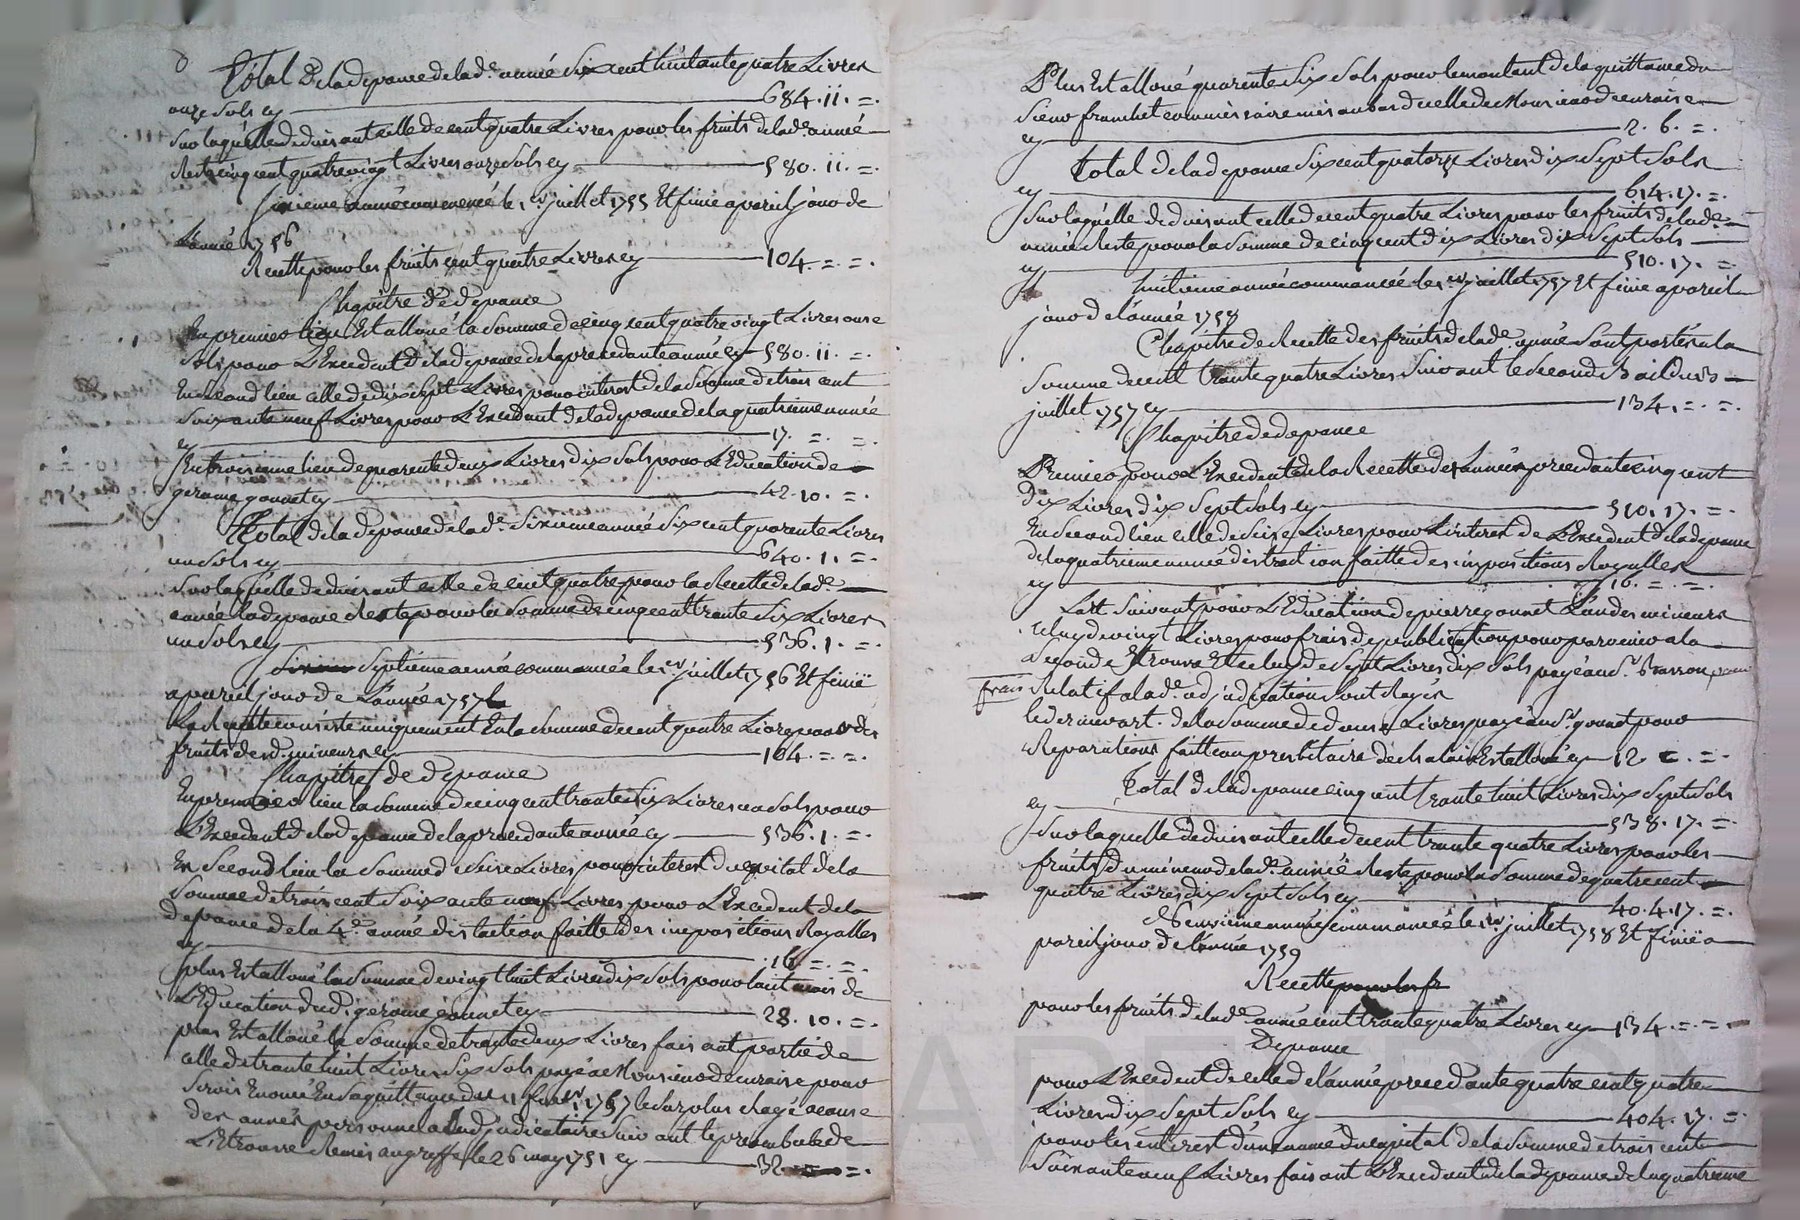 Total de la depance de lad.e année Six cent huitante quatre Livres
onze Sols cy 684.11.=.
Sur laquelle deduisant celle de cent quatre Livres pour les fruits de lad.e année
Reste cinq cent quatre vingt Livres onze Sols cy 580.11.=.
Sixieme année commencée le 1.er juillet 1755 Et finie a pareil jour de
L'année 1756
Recette pour les fruits cent quatre Livres cy 104.=.=.
Chapitre De depance
En premier lieu Est alloué la Somme de cinq cent quatre vingt Livres onze
Sols pour L'Excedent de la depance de la precedante année cy 580.11.=.
En Second lieu celle de dix sept Livres pour interest de la Somme de trois cent
Soixante neuf Livres pour L'Excedant de la depance de la quatrieme année
cy 17.=.=.
En troisieme lieu de quarente deux Livres dix Sols pour L'Education de
gerome gonnet cy 42.10.=.
Total de la depance de lad.e Sixieme année Six cent quarante Livres
un Sols cy 640.1.=.
Sur laquelle deduisant celle de cent quatre pour la Recette de lad.e
année la depance Reste pour la Somme de cinq cent trante Six Livres
un Sols cy 536.1.=.
Septieme année commancée le 1.er juillet 1756 Et finië
a pareil jour de L'année 1757
La Recette consiste uniquement En la Somme de cent quatre Livres pour des
fruits desd. mineurs cy 104.=.=.
Chapitre de depance
En premier lieu la Somme de cinq cent trante Six Livres un Sols pour
L'Excedant de la depance de la precedante année cy 536.1.=.
En Second lieu la Somme de Seize Livres pour interest du capital de la
Somme de trois cent Soixante neuf Livres pour L'Excedent de la
depance de la 4.e année distraction faitte des impositions Royalles
cy 16.=.=.
plus Est alloué la Somme de vingt huit Livres dix Sols pour huit mois de
L'Education dud. gerome gonnet cy 28.10.=.
plus Est alloué la Somme de trante deux Livres faisant partie de
celle de trante huit Livres Six Sols payé a Monsieur decuraise pour
Servir Enoncé En Sa quittance du 11 1757 le Surplus Rayé a cause
des années personnel a L'adjudicataire Suivant le preambule de
L'Etrousse Remis au greffe le 26 may 1751 cy 32.=.=.
Plus Est alloué quarente Six Sols pour le montant de la quittance du
Sieur franchet commissaire mis au bas de celle de Monsieur decuraise
cy 2.6.=.
Total de la depance Six cent quatorze Livres dix Sept Sols
cy 614.17.=.
Sur laquelle deduisant celle de cent quatre Livres pour les fruits de lad.e
année Reste pour la Somme de cinq cent dix Livres dix Sept Sols
cy 510.17.=.
huitieme année commancée le 1.er juillet 1757 Et finie a pareil
jour de l'année 1758
Chapitre de Recette des fruits de lad.e année Sont portés a la
Somme de cent trante quatre Livres Suivant le Second Bail du
juillet 1757 cy 134.=.=.
Chapitre de depance
Premier pour L'Excedent de la Recette de L'année precedante cinq cent
Dix Livres dix Sept Sols cy 510.17.=.
En Second lieu celle de Seize Livres pour L'interest de L'Excedent de la depance
de la quatrieme année distraction faitte des impositions Royalles
cy 16.=.=.
L'art. Suivant pour L'Education de pierre gonnet L'un des mineurs
Celuy de vingt Livres pour frais de publication pour parvenir a la
Seconde Etrousse Et celuy de Sept Livres dix Sols payé au S.r Brasson pour
frais Relatif a lad.e adjudication Sont Rayés
le dernier art. de la Somme de douze Livres payé au S.r gonnet pour
Reparations faitte au presbitaire de chalain Est alloué cy 12.=.=.
Total de la depance cinq cent trante huit Livres dix Sept Sols
cy 538.17.=.
Sur laquelle deduisant celle de cent trante quatre Livres pour les
fruits du mineur de lad.e année Reste pour la Somme de quatre cent
quatre Livres dix Sept Sols cy 40.4.17.=.
Neuvieme année commancée le 1.er juillet 1758 Et finië a
pareil jour de L'année 1759
Recette pour les fr
pour les fruits de lad.e année cent trante quatre Livres cy 134.=.=.
Depance
pour L'Excedent de celle de L'année precedante quatre cent quatre
Livres dix Sept Sols cy 404.17.=.
pour les interest d'une année du capital de la Somme de trois cent
Soixante neuf Livres faisant L'Excedant de la depance de la quatrieme